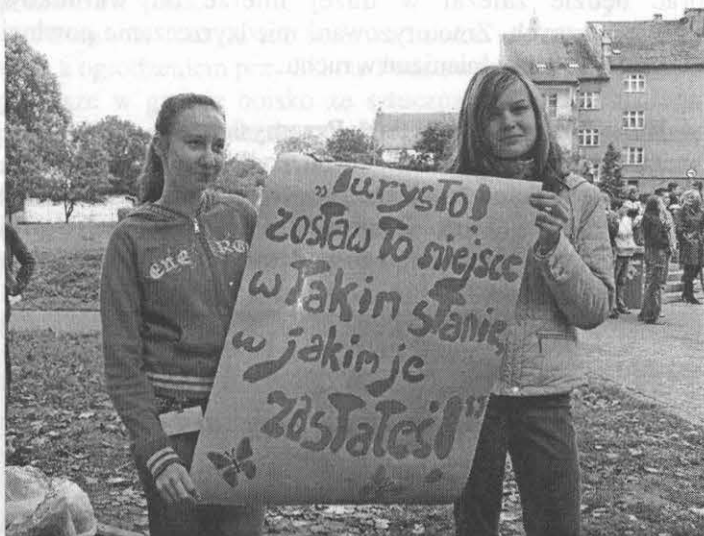 „Turysto!
zostaw to miejsce
w takim stanie,
w jakim je
zastałeś!"